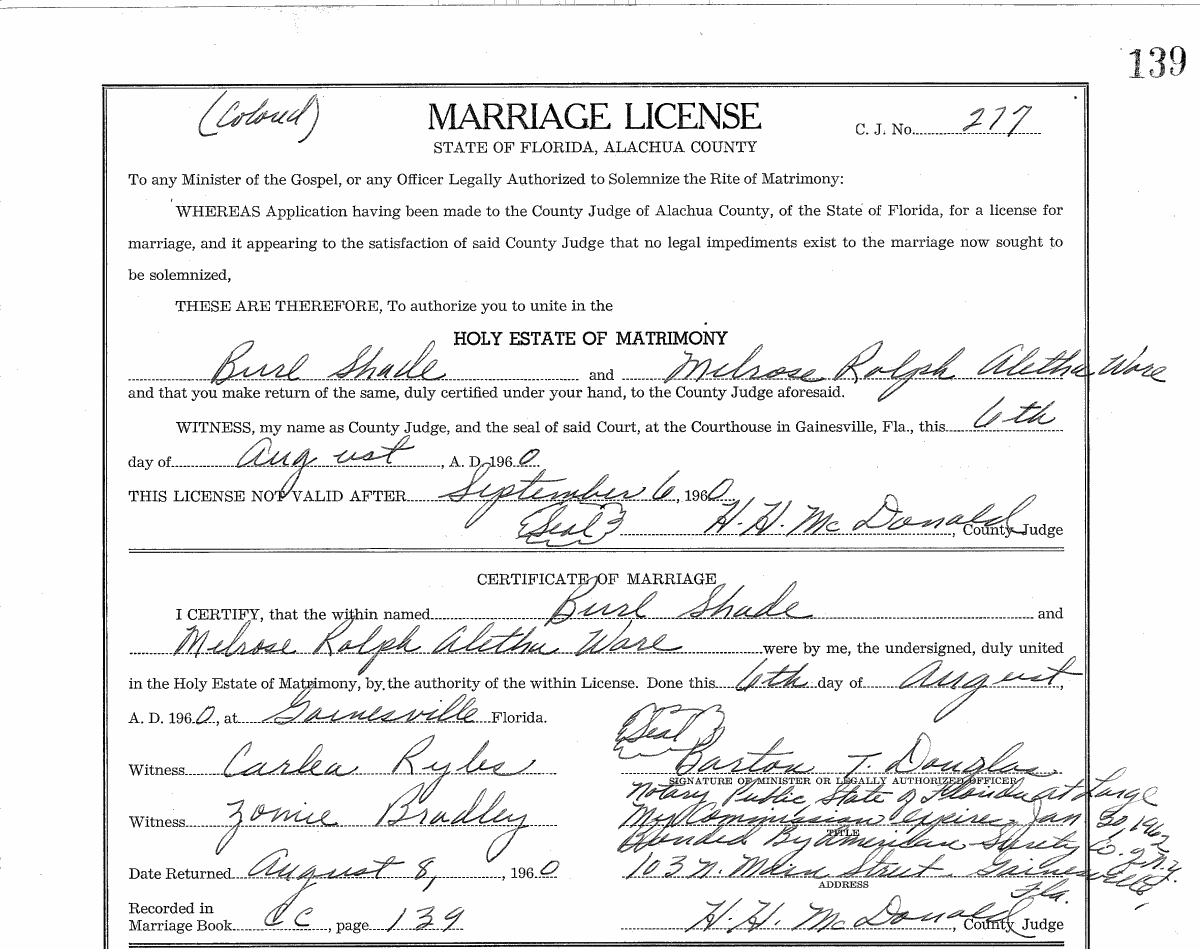 139
(Colored)
MARRIAGE LICENSE
C. J. No. 277
STATE OF FLORIDA, ALACHUA COUNTY
To any Minister of the Gospel, or any Officer Legally Authorized to Solemnize the Rite of Matrimony:
WHEREAS Application having been made to the County Judge of Alachua County, of the State of Florida, for a license for
marriage, and it appearing to the satisfaction of said County Judge that no legal impediments exist to the marriage now sought to
be solemnized,
THESE ARE THEREFORE, To authorize you to unite in the
HOLY ESTATE OF MATRIMONY
Burl Shade and Melrose Rolph Aletha Ware
and that you make return of the same, duly certified under your hand, to the County Judge aforesaid.
WITNESS, my name as County Judge, and the seal of said Court, at the Courthouse in Gainesville, Fla., this 6th
day of August, A. D. 1960
THIS LICENSE NOT VALID AFTER September 6, 1960
(Seal) H. H. McDonald, County Judge
CERTIFICATE OF MARRIAGE
I CERTIFY, that the within named Burl Shade and
Melrose Rolph Aletha Ware were by me, the undersigned, duly united
in the Holy Estate of Matrimony, by the authority of the within License. Done this 6th day of August,
A. D. 1960, at Gainesville Florida.
(Seal)
Witness Carlea Ryles
Barton T. Douglas
SIGNATURE OF MINISTER OR LEGALLY AUTHORIZED OFFICER
Notary Public, State of Florida at Large
Witness Zomie Bradley
My Commission expires Jan 30, 1962
TITLE
Bonded By American Surety Co. of N.Y.
Date Returned August 8, 1960
103 N. Main Street, Gainesville,
Fla.
ADDRESS
Recorded in
Marriage Book CC, page 139
H. H. McDonald, County Judge